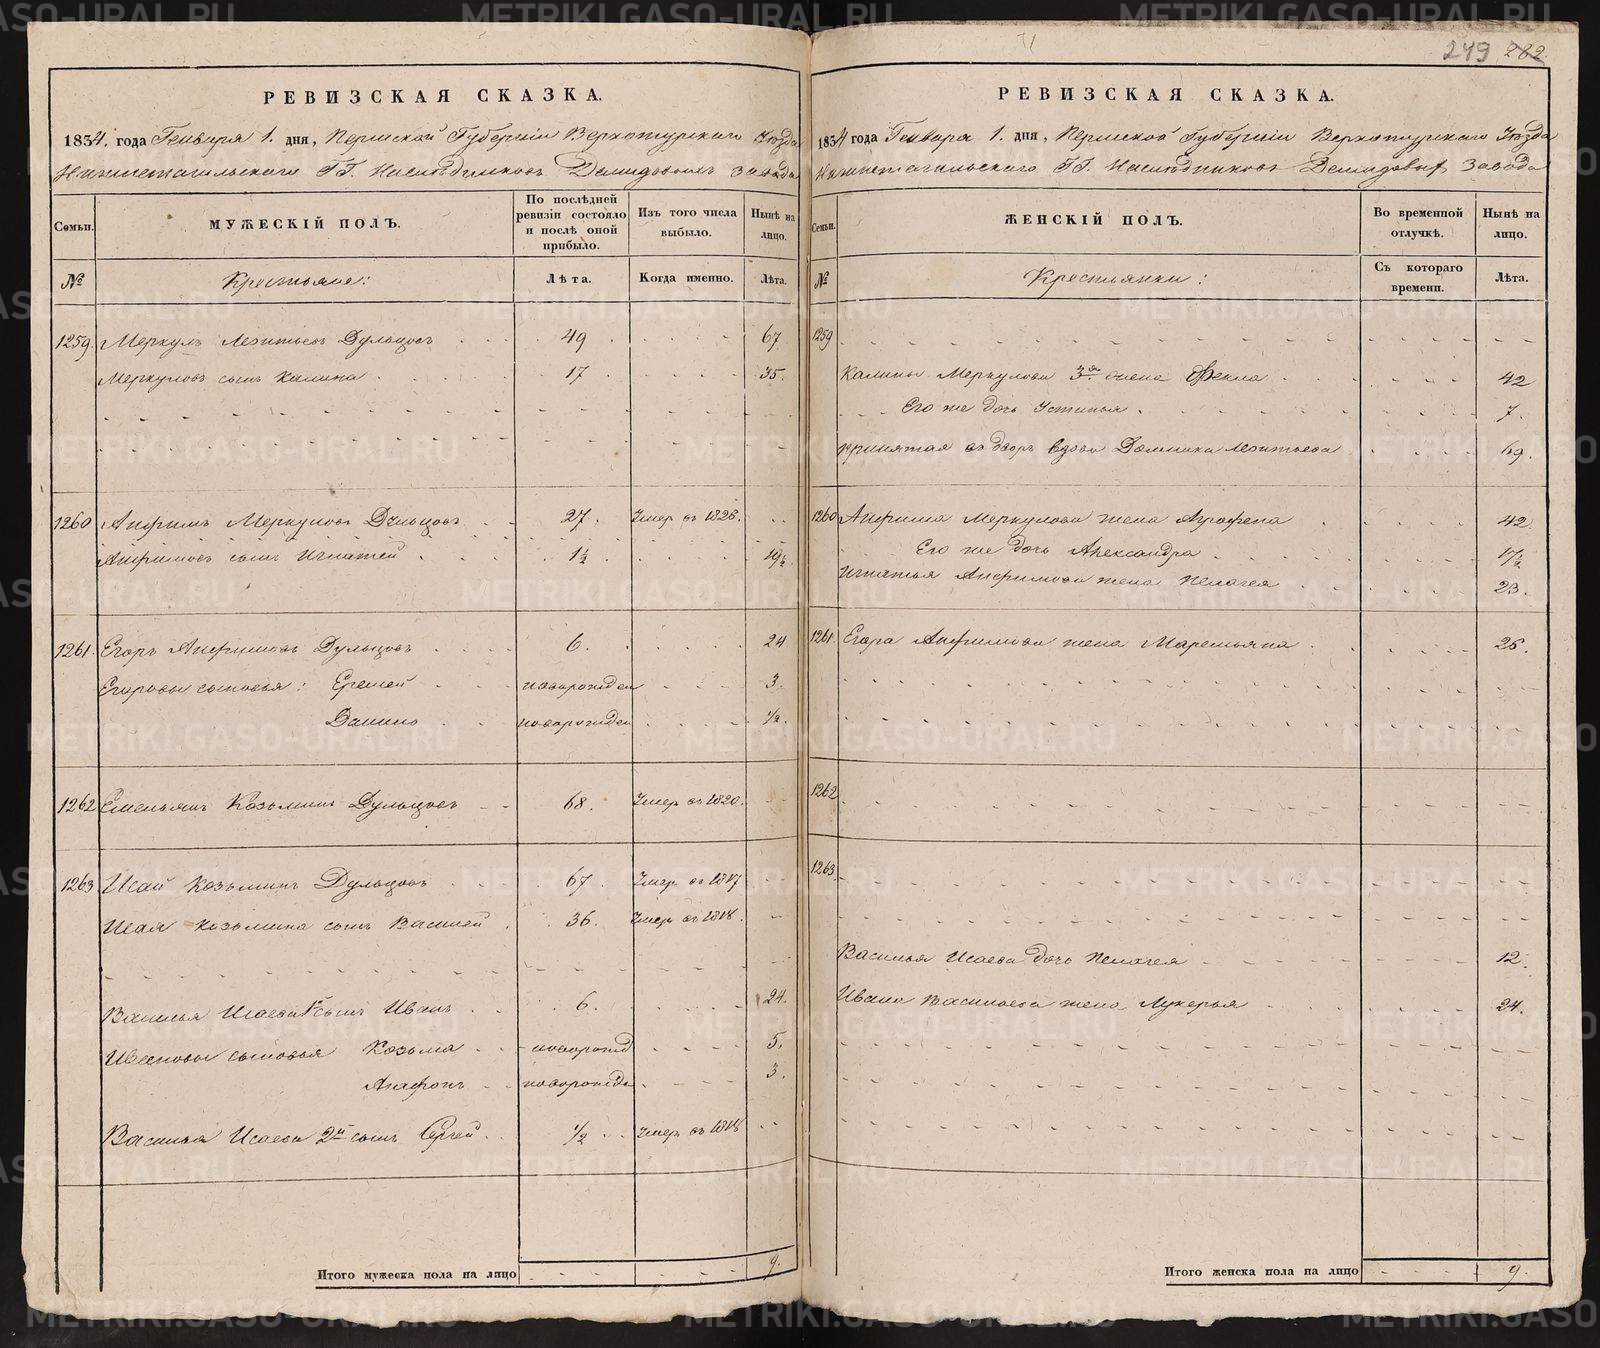 249 282.
РЕВИЗСКАЯ СКАЗКА.
1834. года Генваря 1. дня, Пермской Губернiи Верхотурскаго Уѣзда
Нижнетагильскаго ГГ. Наслѣдниковъ Демидовыхъ завода
Семьи. МУЖЕСКІЙ ПОЛЪ. По послѣдней ревизіи состояло и послѣ оной прибыло. Изъ того числа выбыло. Нынѣ на лицо.
№ Крестьяне: Лѣта. Когда именно. Лѣта.
1259. Меркулъ Леонтьевъ Дульцовъ 49 67
Меркуловъ сынъ Калина 17 35.
1260 Анфимъ Меркуловъ Дульцовъ 27. Умер въ 1826.
Анфимовъ сынъ Игнатей 1½ 19½
1261. Егоръ Анфимовъ Дульцовъ 6. 24
Егоровы сыновья: Еремей новорожден 3
Данило новорожден ½.
1262 Емельянъ Козьминъ Дульцовъ 68. Умер въ 1820.
1263 Исай Козьминъ Дульцовъ 67. Умер въ 1817
Исая Козьмина сынъ Василей 36. Умер въ 1818.
Василья Исаева 1й сынъ Иванъ 6. 24.
Ивановы сыновья Козьма новорожд 5.
Анфонъ новорожде 3.
Василья Исаева 2й сынъ Сергей ½ Умер въ 1818
Итого мужеска пола на лицо 9.
РЕВИЗСКАЯ СКАЗКА.
1834 года Генваря 1. дня, Пермской Губернiи Верхотурскаго Уѣзда
Нижнетагильскаго ГГ. Наслѣдниковъ Демидовыхъ Завода
Семьи. ЖЕНСКІЙ ПОЛЪ. Во временной отлучкѣ. Нынѣ на лицо.
№ Крестьянки: Съ котораго времени. Лѣта.
1259
Калины Меркулова 3я жена Фекла 42
Его же дочь Устинья 7.
Принятая въ дворъ вдова Домника Леонтьева 69.
1260 Анфима Меркулова жена Аграфена 42
Его же дочь Александра 17½
Игнатья Анфимова жена Пелагея 23.
1261. Егора Анфимова жена Маремьяна 26.
1262
1263.
Василья Исаева дочь Пелагея 12.
Ивана Васильева жена Лукерья 24.
Итого женска пола на лицо 9.
METRIKI.GASO-URAL.RU